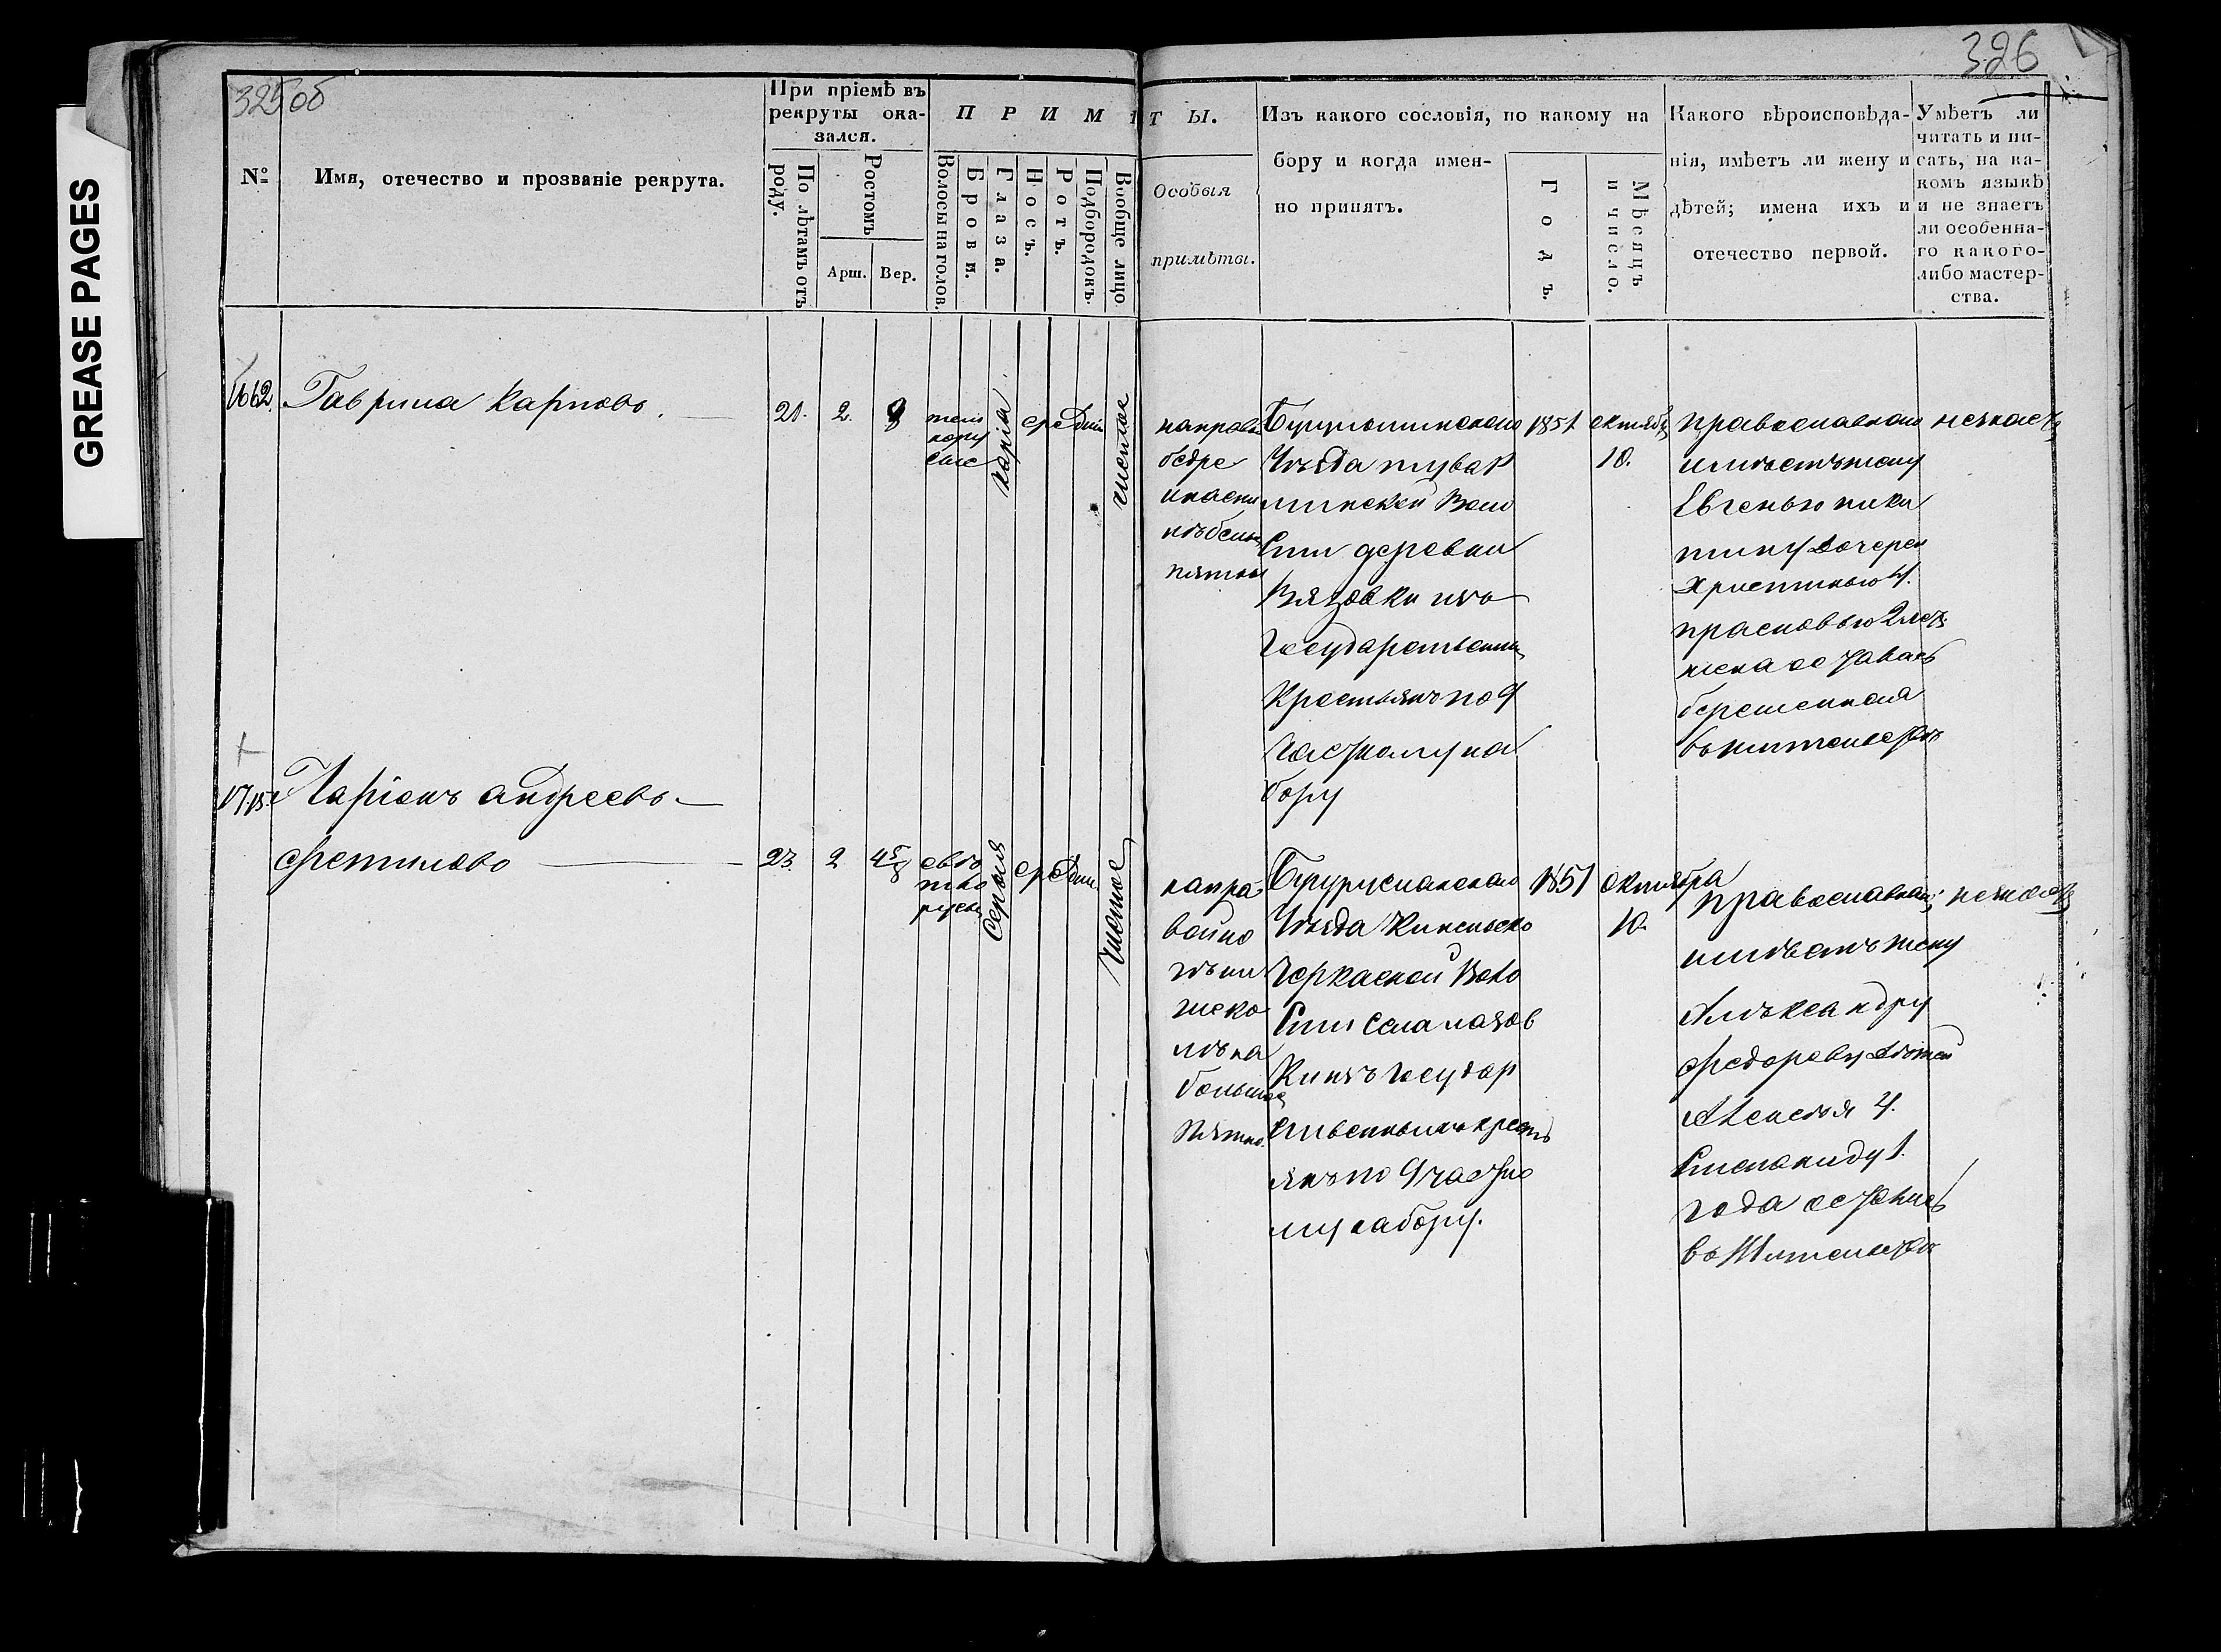 GREASE PAGES
325об
326
№
Имя, отечество и прозваніе рекрута.
При пріемѣ въ
рекруты ока-
зался.
По лѣтамъ отъ
роду.
Ростомъ
Арш.
Вер.
ПРИМѢТЫ.
Волосы на голов.
Брови.
Глаза.
Носъ.
Ротъ.
Подбородокъ.
Вообще лицо
Особыя
примѣты.
Изъ какого сословія, по какому на
бору и когда имен-
но принятъ.
Годъ.
Мѣсяцъ
и число.
Какого вѣроисповѣда-
нія, имѣетъ ли жену и
дѣтей; имена ихъ и
отечество первой.
Умѣетъ ли
читать и пи-
сать, на ка-
комъ языкѣ
и не знаетъ
ли особенна-
го какого-
либо мастер-
ства.
Гаврила Карповъ.
21. 2.
темно
русые
карія
средній
чистое
направо
бедре
бѣлыя
пятны
Уѣзда
Воло
сти деревни
Вязовки изъ
Государственны
Крестьянъ по 9
частному на
бору
1851
октября
10.
православнаго
имѣетъ жену
Евгенью ники
тину дочерей
Христинью 4.
прасковью 2 летъ
жена осталась
беременная
въ жительствѣ
незнаетъ
Ларіонъ андреевъ
23. 2
свѣт
ло
русые
серыя
средн.
чистое
направой но
гѣ ни
же ко
лѣна
большое
Пятно.
Бугурусланскаго
Уѣзда Кинельско
Черкаской Воло
сти Села
Государ
ственныхъ кресть
янъ по 9 частно
му набору.
1851
октября
10.
православнаго;
имѣетъ жену
Алѣксандру
федорову дѣтей
Алексѣя 4.
Степаниду 1.
года остались
въ Жительствѣ
незнаетъ